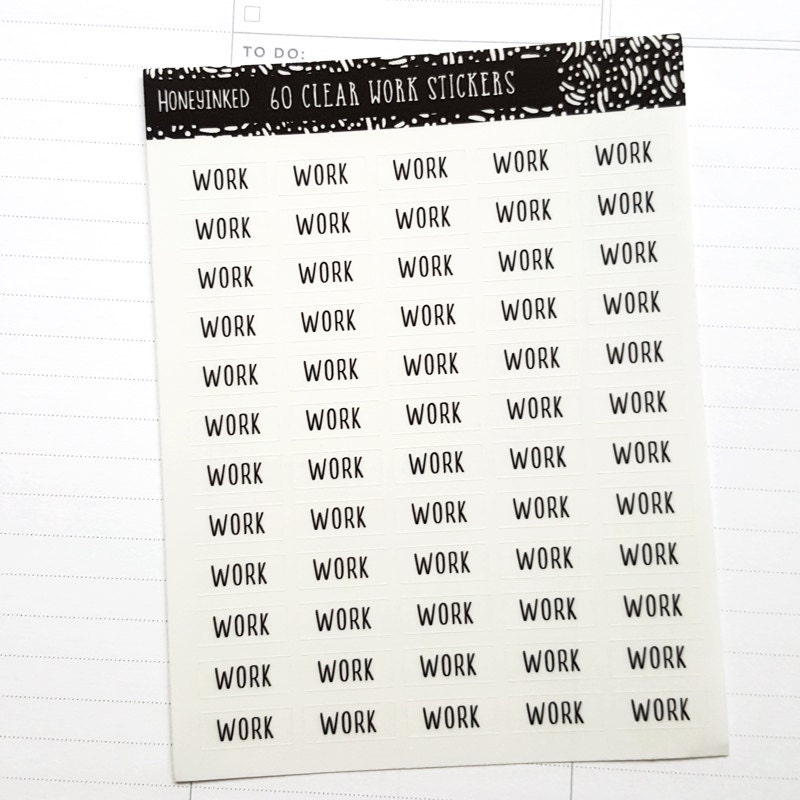 TO DO:
HONEYINKED 60 CLEAR WORK STICKERS
WORK WORK WORK WORK WORK
WORK WORK WORK WORK WORK
WORK WORK WORK WORK WORK
WORK WORK WORK WORK WORK
WORK WORK WORK WORK WORK
WORK WORK WORK WORK WORK
WORK WORK WORK WORK WORK
WORK WORK WORK WORK WORK
WORK WORK WORK WORK WORK
WORK WORK WORK WORK WORK
WORK WORK WORK WORK WORK
WORK WORK WORK WORK WORK